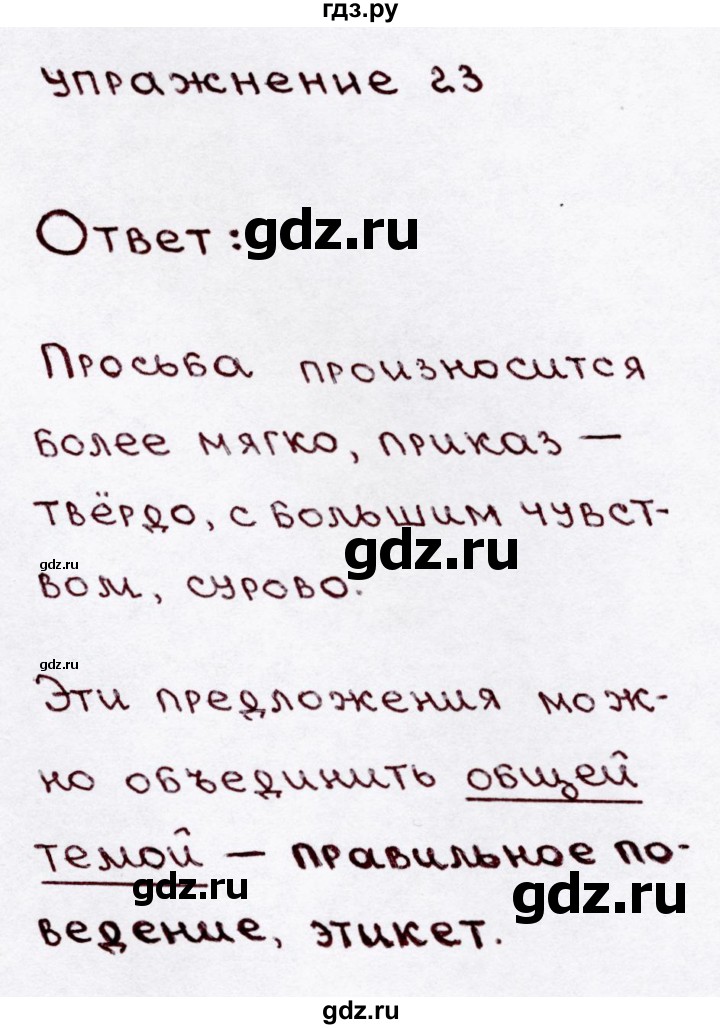 гдз.ру
упражнение 23
Ответ: gdz.ru
Просьба произносится
более мягко, приказ —
твёрдо, с большим чувст-
gdz.ru
gdz.ru
вом, сурово.
gdz.ru
Эти предложения мож-
но объединить общей
темой — правильное по-
gdz.ru
gdz.ru
ведение, этикет.
gdz.ru